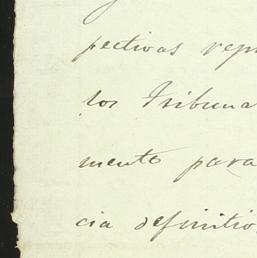 pectivas repr
los Tribuna
mento para
cia definitiv